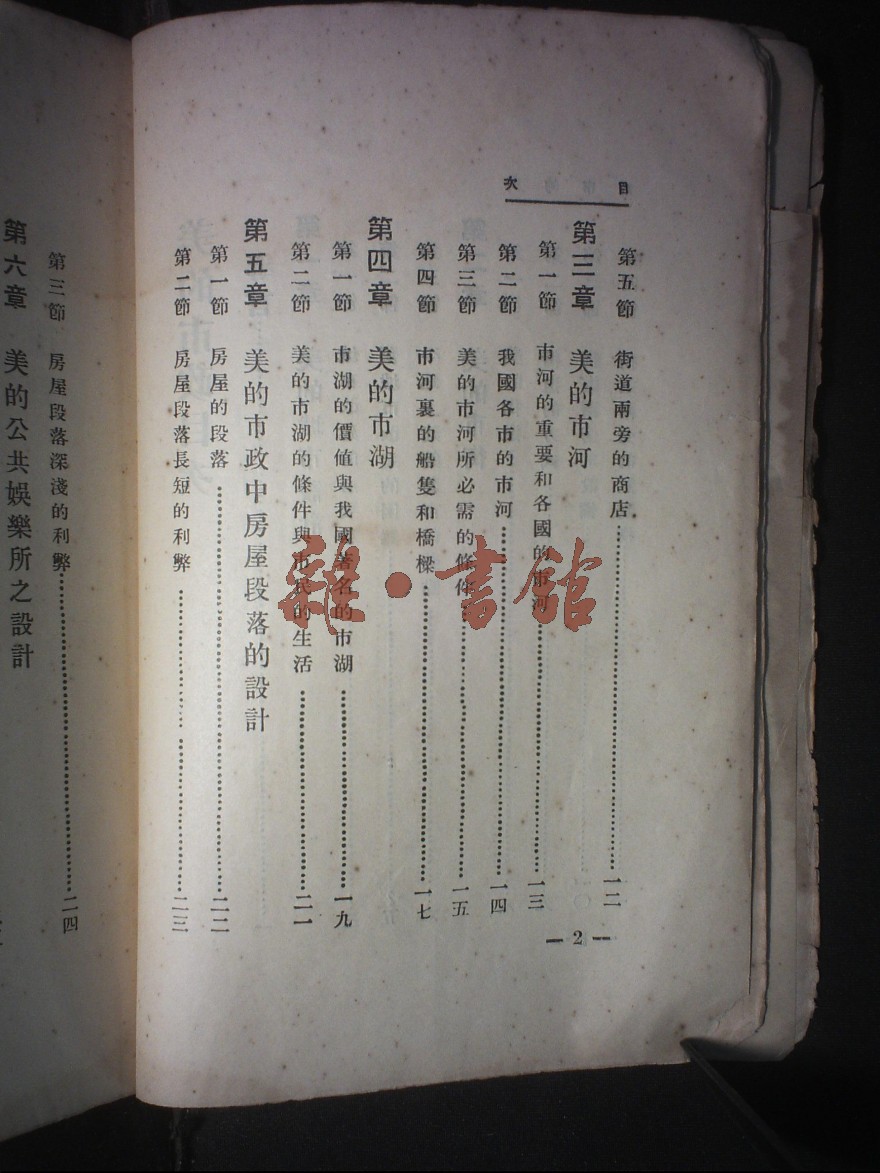 目次
第五節 街道兩旁的商店 一二
第三章 美的市河
第一節 市河的重要和各國的市河 一三
第二節 我國各市的市河 一四
第三節 美的市河所必需的條件 一五
第四節 市河裏的船隻和橋樑 一七
第四章 美的市湖
第一節 市湖的價値與我國著名的市湖 一九
第二節 美的市湖的條件與市民的生活 二一
第五章 美的市政中房屋段落的設計
第一節 房屋的段落 二二
第二節 房屋段落長短的利弊 二三
— 2 —
第三節 房屋段落深淺的利弊 二四
第六章 美的公共娛樂所之設計
雜·書館